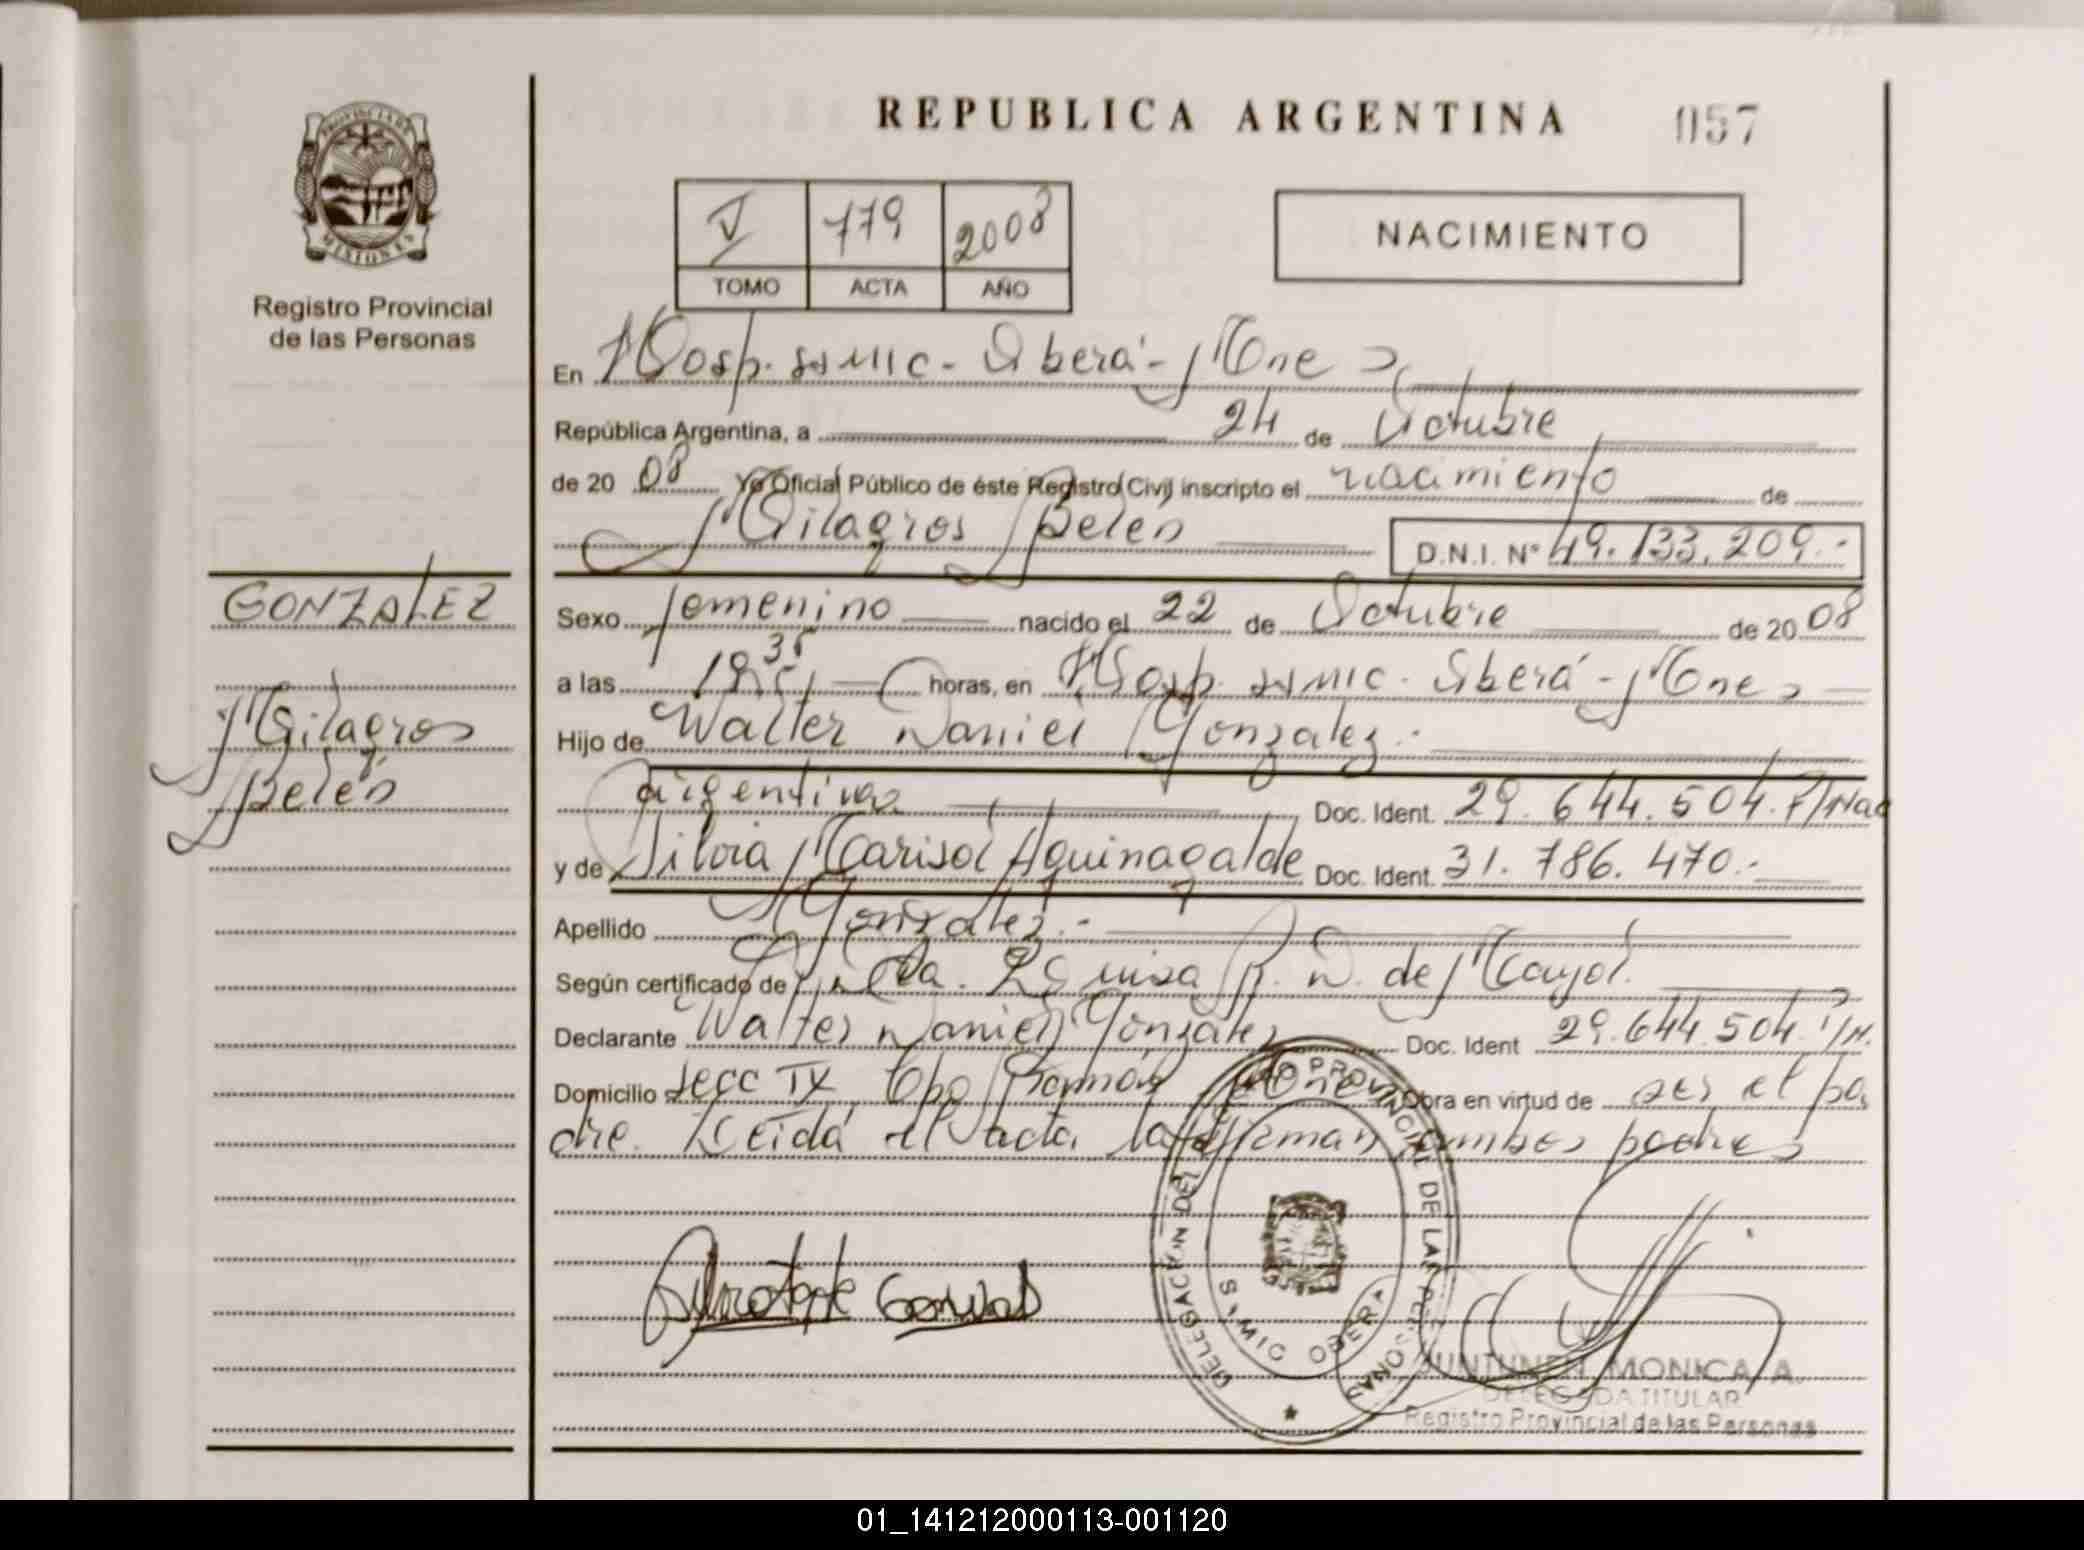 REPUBLICA ARGENTINA
057
PROVINCIA DE
MISIONES
Registro Provincial
de las Personas
V 779 2008
TOMO ACTA AÑO
NACIMIENTO
En Hosp. SSMIC - Oberá - Mnes
República Argentina, a 24 de Octubre
de 20 08 Yo Oficial Público de éste Registro Civil inscripto el nacimiento de
Milagros Belén D.N.I. Nº 49.133.209.-
GONZALEZ
Milagros
Belén
Sexo femenino nacido el 22 de Octubre de 20 08
a las 19 35 horas, en Hosp. SSMIC - Oberá - Mnes
Hijo de Walter Daniel Gonzalez.-
argentinos Doc. Ident. 29.644.504. P/Nac
y de Silvia Marisol Aguinagalde Doc. Ident. 31.786.470.-
Apellido Gonzalez.-
Según certificado de Lda. Luisa R. N. de Mayol.
Declarante Walter Daniel Gonzalez Doc. Ident 29.644.504. P/N.
Domicilio Secc IX, Obra en virtud de ser el pa
dre. Leída el acta la firman ambos padres
DELEGACION DEL REGISTRO PROVINCIAL DE LAS PERSONAS
S.MIC OBERA
JUNTUNEN, MONICA A.
DELEGADA TITULAR
Registro Provincial de las Personas
01_141212000113-001120